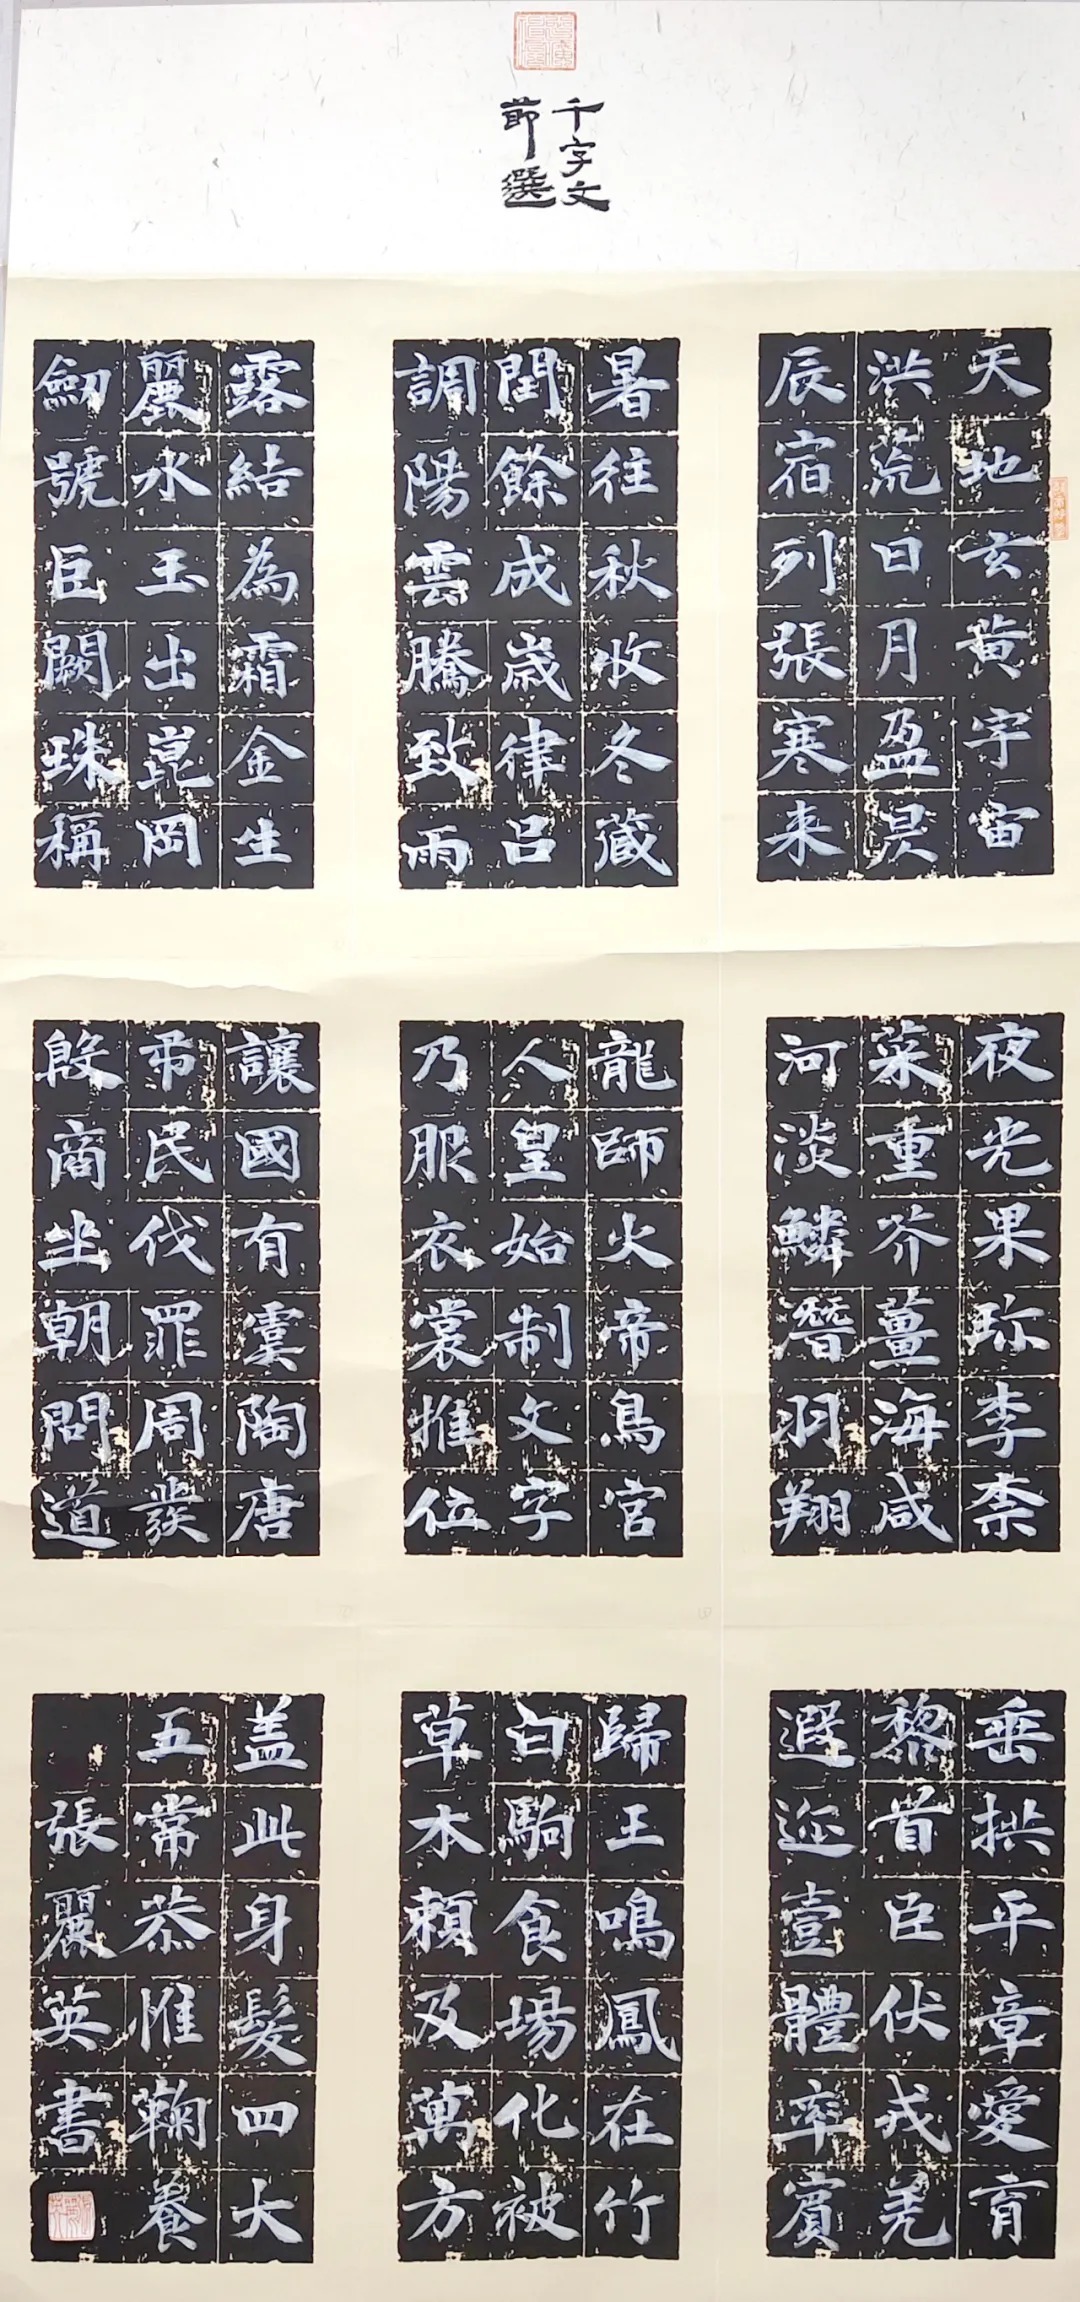 千字文
節選
天地玄黄宇宙
洪荒日月盈昃
辰宿列張寒来
暑往秋收冬藏
閏餘成歲律吕
調陽雲騰致雨
露結為霜金生
麗水玉出崑岡
劒號巨闕珠稱
夜光果珎李柰
菜重芥薑海咸
河淡鱗潛羽翔
龍師火帝鳥官
人皇始制文字
乃服衣裳推位
讓國有虞陶唐
弔民伐罪周發
殷商坐朝問道
垂拱平章愛育
黎首臣伏戎羌
遐迩壹體率賓
歸王鳴鳳在竹
白駒食場化被
草木頼及萬方
盖此身髮四大
五常恭惟鞠養
張麗英書